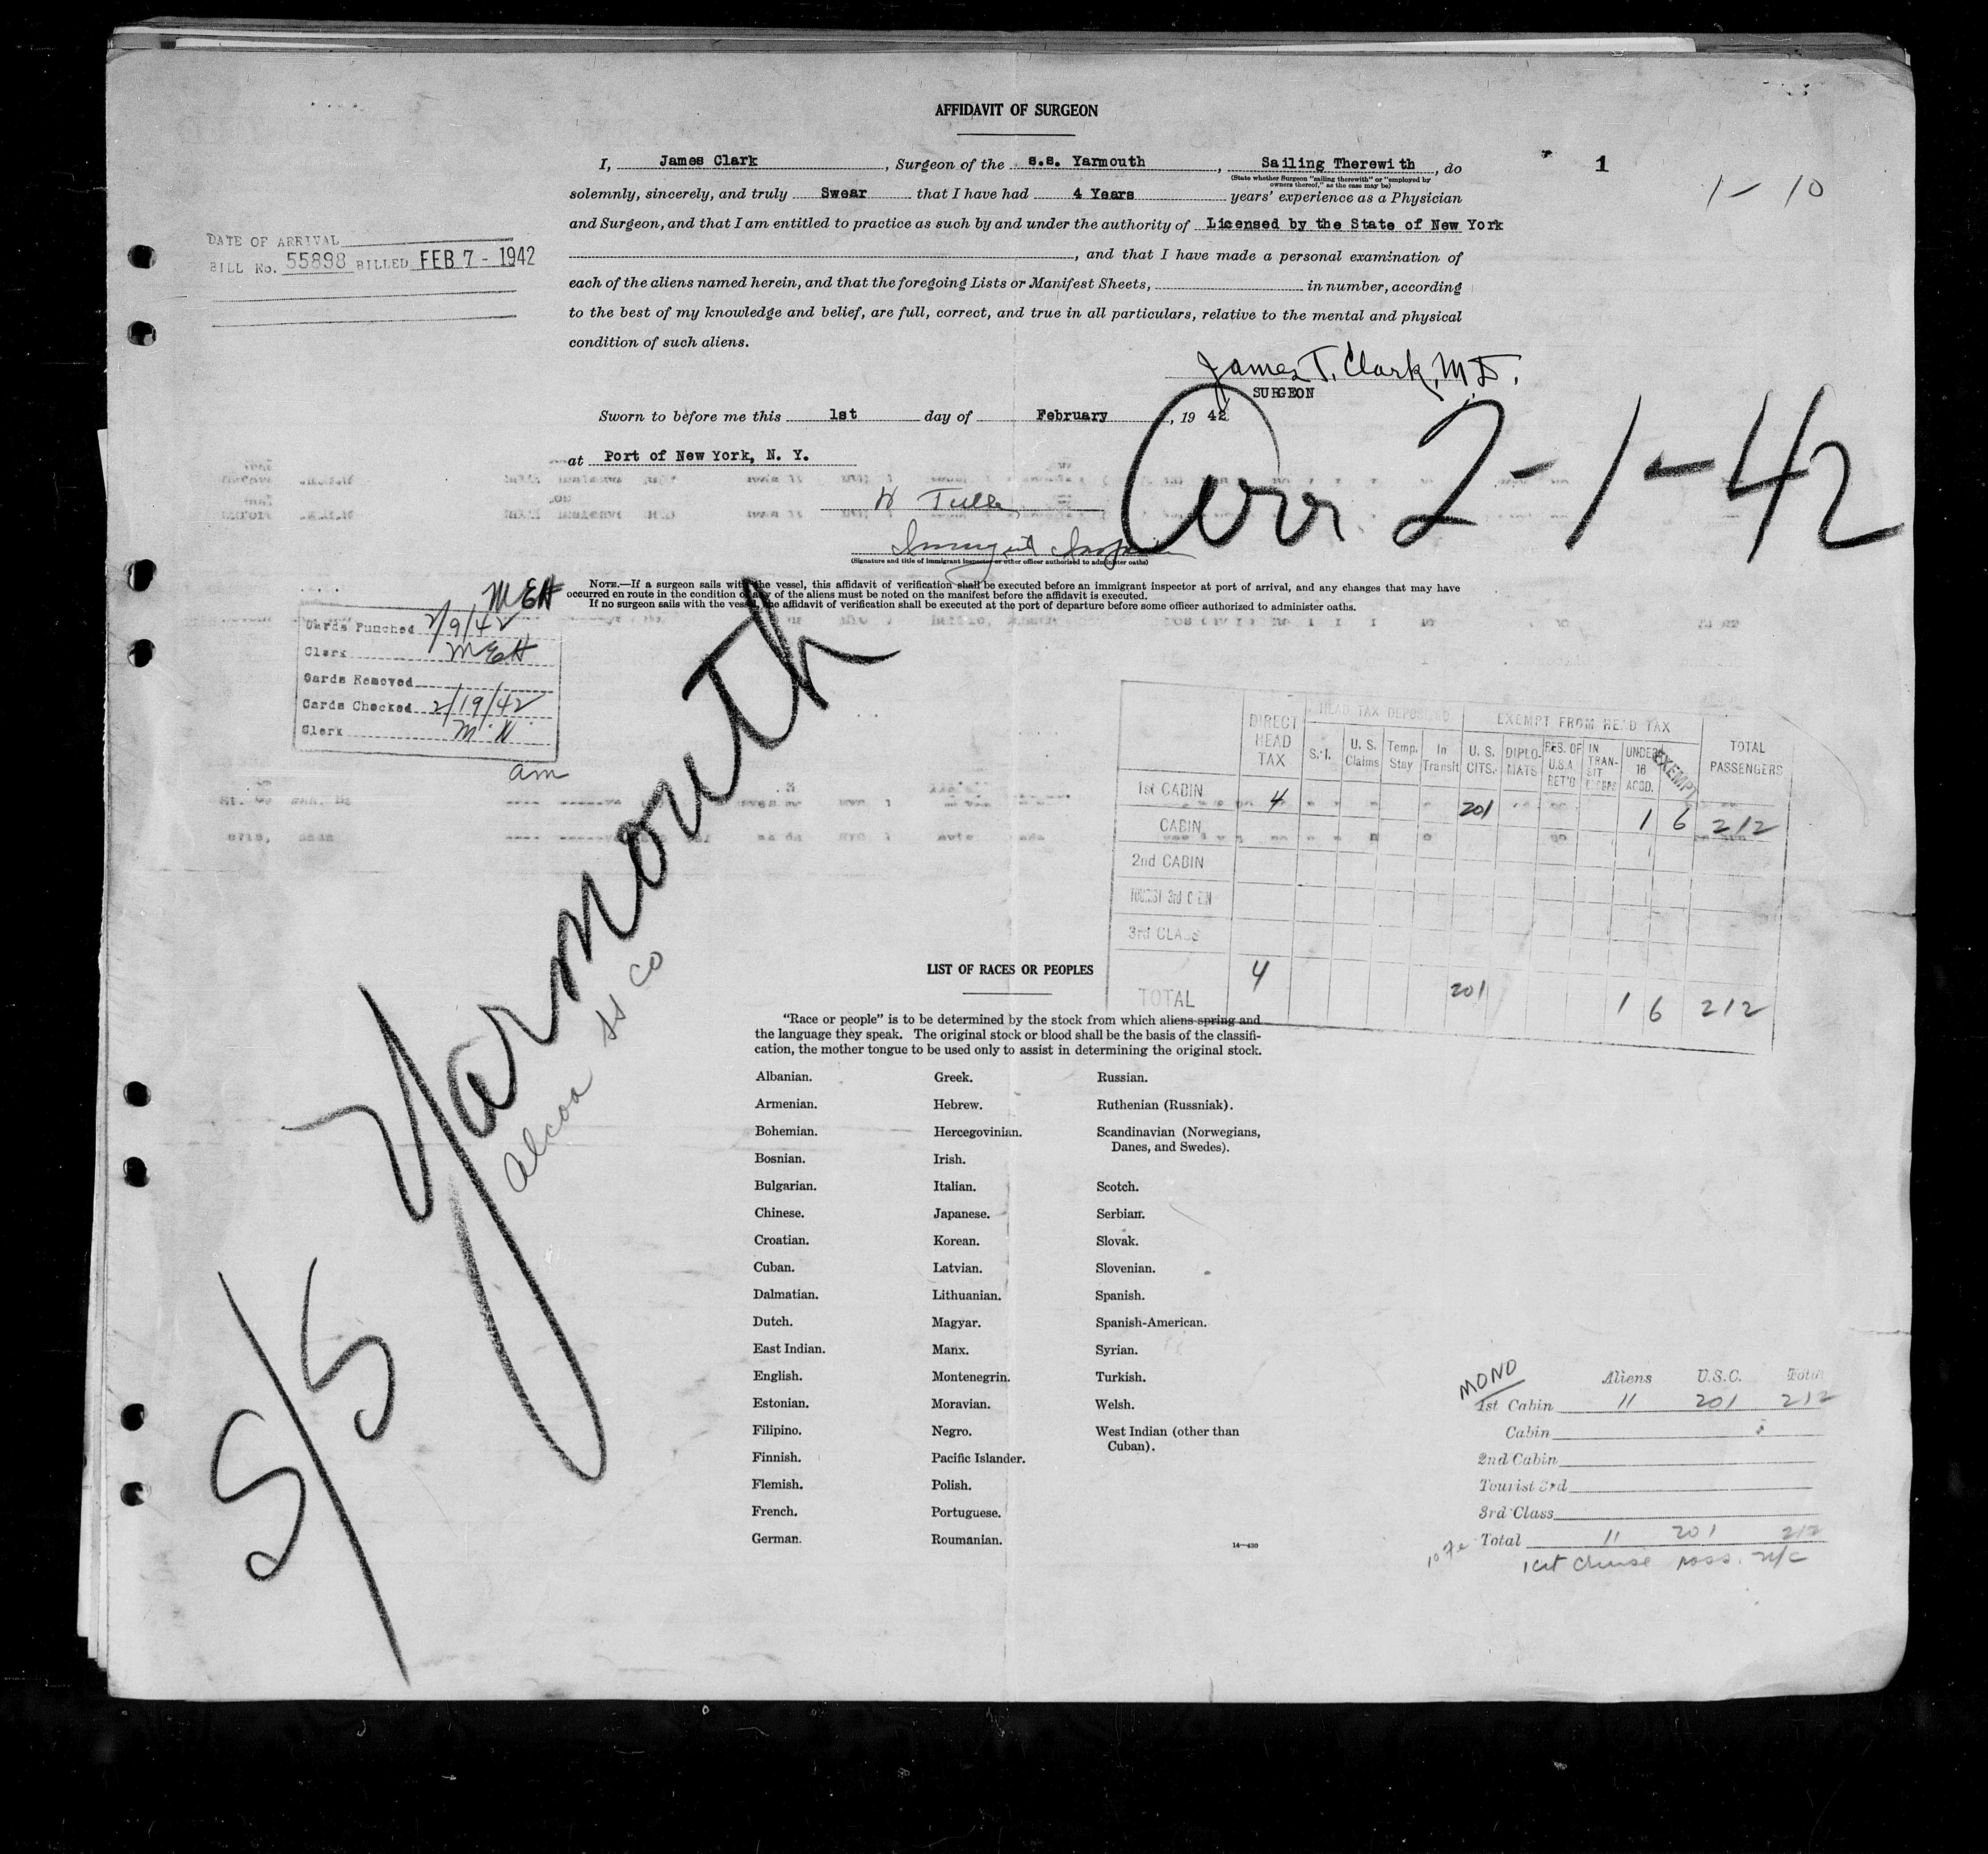 AFFIDAVIT OF SURGEON
1
1 – 10
I, James Clark, Surgeon of the s.s. Yarmouth, Sailing Therewith, do
(State whether Surgeon "sailing therewith" or "employed by
owners thereof," as the case may be)
solemnly, sincerely, and truly Swear that I have had 4 Years years' experience as a Physician
and Surgeon, and that I am entitled to practice as such by and under the authority of Licensed by the State of New York
, and that I have made a personal examination of
each of the aliens named herein, and that the foregoing Lists or Manifest Sheets, in number, according
to the best of my knowledge and belief, are full, correct, and true in all particulars, relative to the mental and physical
condition of such aliens.
DATE OF ARRIVAL
BILL No. 55898 BILLED FEB 7 - 1942
James T. Clark, M.D.
SURGEON
Sworn to before me this 1st day of February, 19 42
at Port of New York, N. Y.
Arr 2-1-42
(Signature and title of immigrant inspector or other officer authorized to administer oaths)
NOTE.—If a surgeon sails with the vessel, this affidavit of verification shall be executed before an immigrant inspector at port of arrival, and any changes that may have
occurred en route in the condition of any of the aliens must be noted on the manifest before the affidavit is executed.
If no surgeon sails with the vessel, the affidavit of verification shall be executed at the port of departure before some officer authorized to administer oaths.
MEH
Cards Punched 2/9/42
Clerk MEH
Cards Removed
Cards Checked 2/19/42
Clerk M.N.
am
S/S Yarmouth
Alcoa SS Co
DIRECT HEAD TAX
HEAD TAX DEPOSITED
EXEMPT FROM HEAD TAX
TOTAL PASSENGERS
S.I. U.S. Claims Temp. Stay In Transit U.S. CITS. DIPLOMATS RES. OF U.S.A. RET'G IN TRANSIT UNDER 16 ACOD. EXEMPT
1st CABIN 4 201 1 6 212
CABIN
2nd CABIN
TOURIST 3rd
3rd CLASS
TOTAL 4 201 1 6 212
LIST OF RACES OR PEOPLES
"Race or people" is to be determined by the stock from which aliens spring and
the language they speak. The original stock or blood shall be the basis of the classifi-
cation, the mother tongue to be used only to assist in determining the original stock.
Albanian.
Armenian.
Bohemian.
Bosnian.
Bulgarian.
Chinese.
Croatian.
Cuban.
Dalmatian.
Dutch.
East Indian.
English.
Estonian.
Filipino.
Finnish.
Flemish.
French.
German.
Greek.
Hebrew.
Hercegovinian.
Irish.
Italian.
Japanese.
Korean.
Latvian.
Lithuanian.
Magyar.
Manx.
Montenegrin.
Moravian.
Negro.
Pacific Islander.
Polish.
Portuguese.
Roumanian.
Russian.
Ruthenian (Russniak).
Scandinavian (Norwegians,
Danes, and Swedes).
Scotch.
Serbian.
Slovak.
Slovenian.
Spanish.
Spanish-American.
Syrian.
Turkish.
Welsh.
West Indian (other than
Cuban).
14—430
MOND
Aliens U.S.C. Total
1st Cabin 11 201 212
Cabin
2nd Cabin
Tourist 3rd
3rd Class
Total 11 201 212